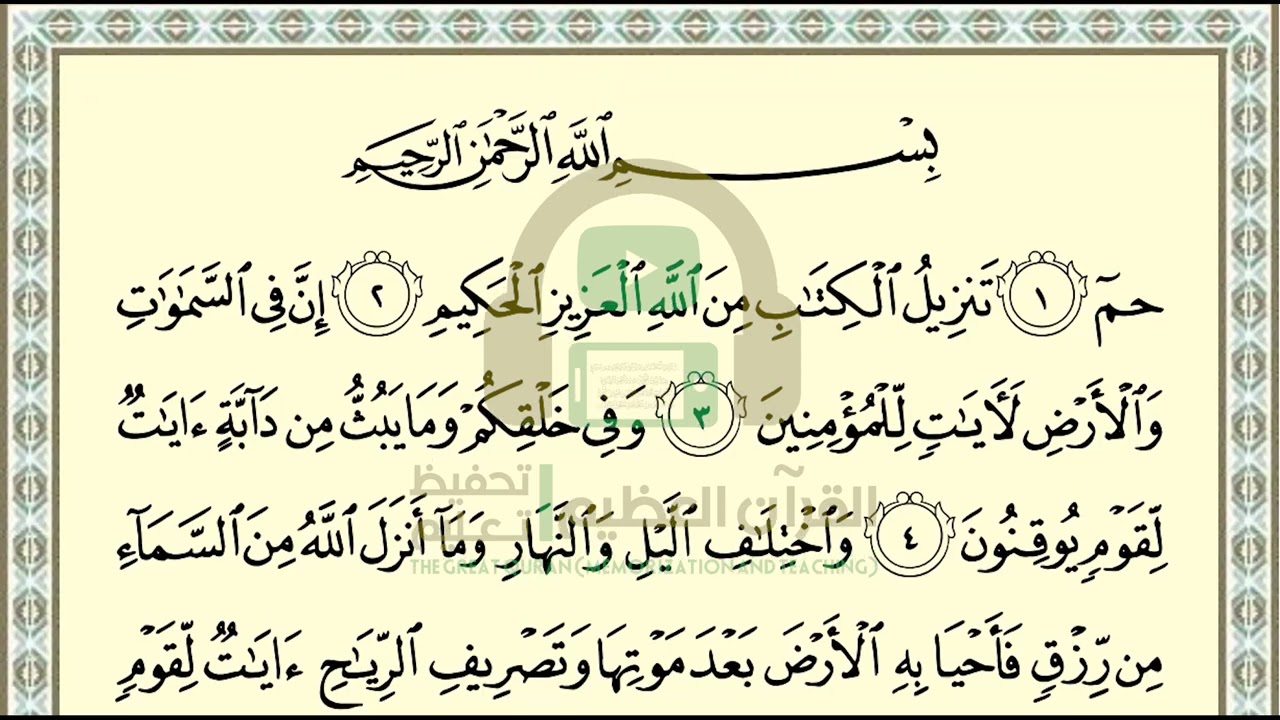 بِسْمِ اللَّهِ الرَّحْمَٰنِ الرَّحِيمِ
حمٓ ١ تَنزِيلُ ٱلْكِتَٰبِ مِنَ ٱللَّهِ ٱلْعَزِيزِ ٱلْحَكِيمِ ٢ إِنَّ فِى ٱلسَّمَٰوَٰتِ
وَٱلْأَرْضِ لَءَايَٰتٍ لِّلْمُؤْمِنِينَ ٣ وَفِى خَلْقِكُمْ وَمَا يَبُثُّ مِن دَآبَّةٍ ءَايَٰتٌ
تحفيظ القرآن العظيم
تعليم
لِّقَوْمٍ يُوقِنُونَ ٤ وَٱخْتِلَٰفِ ٱلَّيْلِ وَٱلنَّهَارِ وَمَآ أَنزَلَ ٱللَّهُ مِنَ ٱلسَّمَآءِ
THE GREAT QURAN (MEMORIZATION AND TEACHING)
مِن رِّزْقٍ فَأَحْيَا بِهِ ٱلْأَرْضَ بَعْدَ مَوْتِهَا وَتَصْرِيفِ ٱلرِّيَٰحِ ءَايَٰتٌ لِّقَوْمٍ